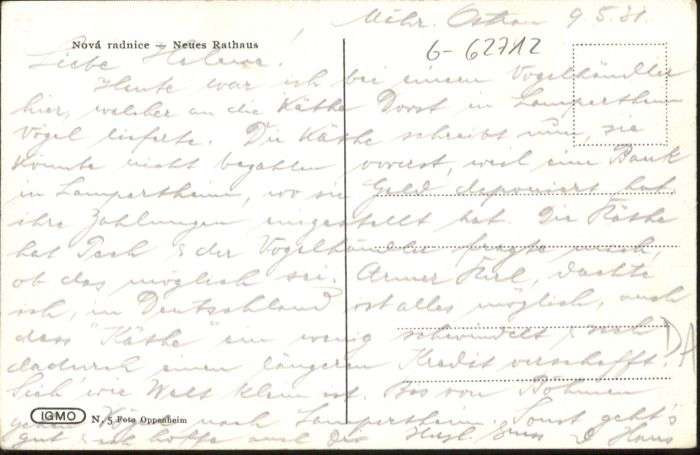 Mähr. Ostrau 9.5.31.
6-62712
Nová radnice — Neues Rathaus
Liebe Helene!
Heute war ich bei einem Vogelhändler
hier, welcher an die Käthe Dorst in Lampertheim
Vögel lieferte. Die Käthe schreibt nun, sie
könnte nicht bezahlen vorerst, weil eine Bank
in Lampertheim, wo sie Geld deponiert hat,
ihre Zahlungen eingestellt hat. Die Käthe
hat Pech & der Vogelhändler fragte mich,
ob das möglich sei. Armer Kerl, dachte
ich, in Deutschland ist alles möglich, auch
dass "Käthe" ein wenig schwindelt & sich
dadurch einen längeren Kredit verschafft.
Sich wie Welt klein ist. Bis von Böhmen
gehen Vögel nach Lampertheim. Sonst geht's
gut & ich hoffe auch dir Herzl. Gruss D Hans
DA
IGMO N. 5 Foto Oppenheim